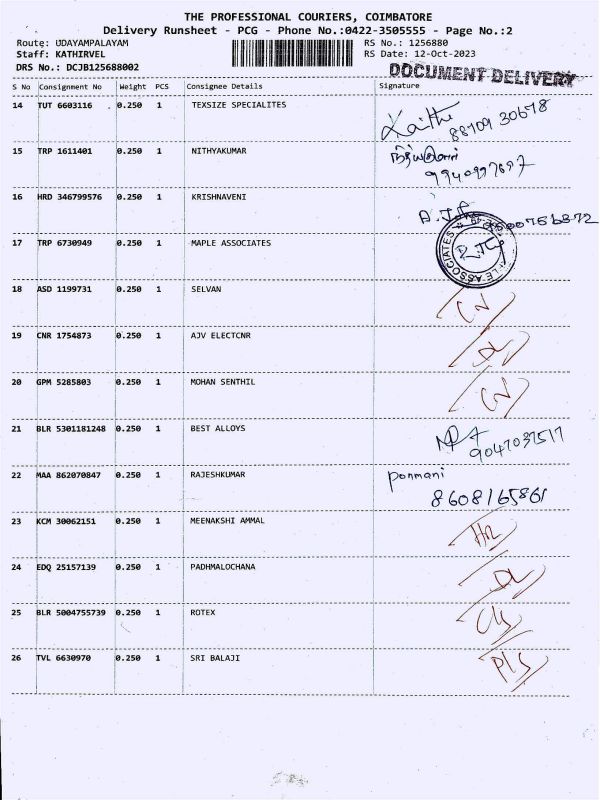 THE PROFESSIONAL COURIERS, COIMBATORE
Delivery Runsheet - PCG - Phone No.:0422-3505555 - Page No.:2
Route: UDAYAMPALAYAM RS No.: 1256880
Staff: KATHIRVEL RS Date: 12-Oct-2023
DRS No.: DCJB125688002 DOCUMENT DELIVERY
S No Consignment No Weight PCS Consignee Details Signature
14 TUT 6603116 0.250 1 TEXSIZE SPECIALITES
88709 30678
15 TRP 1611401 0.250 1 NITHYAKUMAR
16 HRD 346799576 0.250 1 KRISHNAVENI
17 TRP 6730949 0.250 1 MAPLE ASSOCIATES
18 ASD 1199731 0.250 1 SELVAN
19 CNR 1754873 0.250 1 AJV ELECTCNR
20 GPM 5285803 0.250 1 MOHAN SENTHIL
21 BLR 5301181248 0.250 1 BEST ALLOYS
22 MAA 862070847 0.250 1 RAJESHKUMAR Ponmani
8608165861
23 KCM 30062151 0.250 1 MEENAKSHI AMMAL
24 EDQ 25157139 0.250 1 PADHMALOCHANA
25 BLR 5004755739 0.250 1 ROTEX
26 TVL 6630970 0.250 1 SRI BALAJI